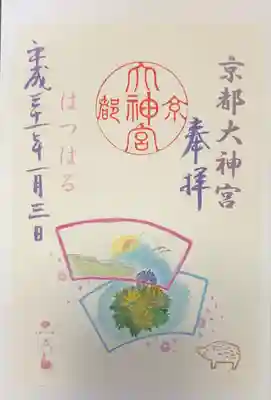 京都大神宮
奉拝
京
大神宮
都
はつはる
平成三十一年一月三日